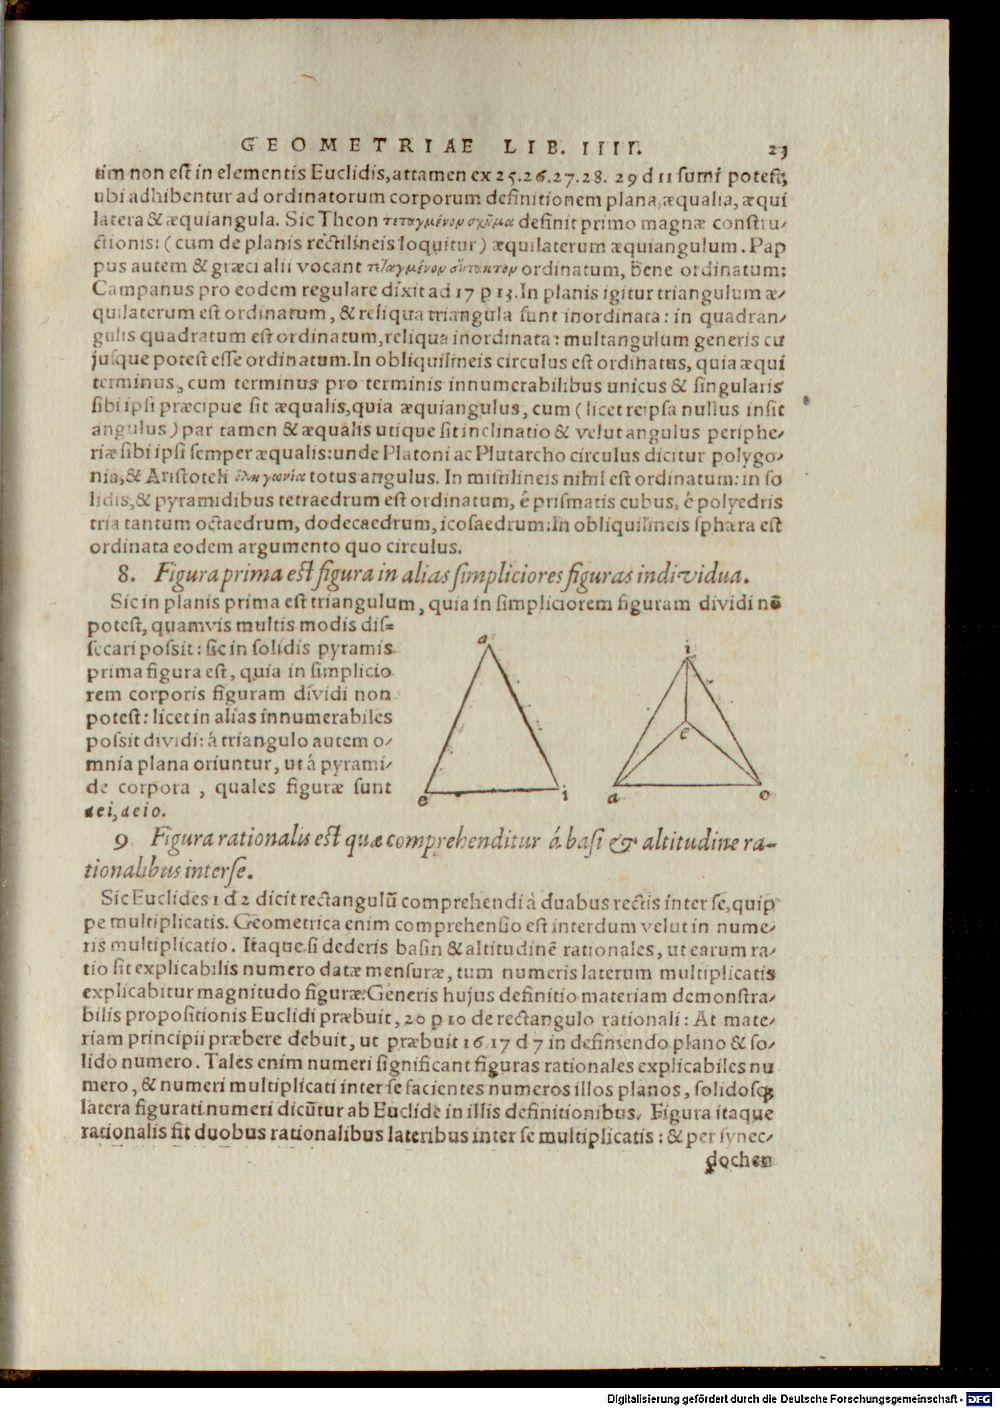 GEOMETRIAE LIB. IIII. 23
tim non est in elementis Euclidis, attamen ex 25.26.27.28. 29 d 11 sumi potest,
ubi adhibentur ad ordinatorum corporum definitionem plana, æqualia, æqui
latera & æquiangula. Sic Theon τεταγμένον σχῆμα definit primo magnæ constru⸗
ctionis: (cum de planis rectilineis loquitur) æquilaterum æquiangulum. Pap
pus autem & græci alii vocant ordinatum, bene ordinatum:
Campanus pro eodem regulare dixit ad 17 p 13. In planis igitur triangulum æ⸗
quilaterum est ordinatum, & reliqua triangula sunt inordinata: in quadran⸗
gulis quadratum est ordinatum, reliqua inordinata: multangulum generis cu
jusque potest esse ordinatum. In obliquilineis circulus est ordinatus, quia æqui
terminus, cum terminus pro terminis innumerabilibus unicus & singularis
sibi ipsi præcipue sit æqualis, quia æquiangulus, cum (licet reipsa nullus insit
angulus) par tamen & æqualis utique sit inclinatio & velut angulus periphe⸗
riæ sibi ipsi semper æqualis: unde Platoni ac Plutarcho circulus dicitur polygo⸗
nia, & Aristoteli ὁλη γωνία totus angulus. In mistilineis nihil est ordinatum: in so
lidis, & pyramidibus tetraedrum est ordinatum, é prismatis cubus, é polyedris
tria tantum octaedrum, dodecaedrum, icosaedrum: In obliquilineis sphæra est
ordinata eodem argumento quo circulus.
8. Figura prima est figura in alias simpliciores figuras individua.
Sic in planis prima est triangulum, quia in simpliciorem figuram dividi nō
potest, quamvis multis modis dis⸗
secari possit: sic in solidis pyramis
prima figura est, quia in simplicio
rem corporis figuram dividi non
potest: licet in alias innumerabiles
possit dividi: á triangulo autem o⸗
mnia plana oriuntur, ut á pyrami⸗
de corpora, quales figuræ sunt
aei, aeio.
a
e
i
i
e
a
o
9 Figura rationalis est quæ comprehenditur á basi & altitudine ra-
tionalibus inter se.
Sic Euclides 1 d 2 dicit rectangulū comprehendi à duabus rectis inter se, quip
pe multiplicatis. Geometrica enim comprehensio est interdum velut in nume⸗
ris multiplicatio. Itaque si dederis basin & altitudinē rationales, ut earum ra⸗
tio sit explicabilis numero datæ mensuræ, tum numeris laterum multiplicatis
explicabitur magnitudo figuræ. Generis hujus definitio materiam demonstra⸗
bilis propositionis Euclidi præbuit, 20 p 10 de rectangulo rationali: At mate⸗
riam principii præbere debuit, ut præbuit 16.17 d 7 in definiendo plano & so⸗
lido numero. Tales enim numeri significant figuras rationales explicabiles nu
mero, & numeri multiplicati inter se facientes numeros illos planos, solidosq;
latera figurati numeri dicūtur ab Euclide in illis definitionibus. Figura itaque
rationalis fit duobus rationalibus lateribus inter se multiplicatis: & per synec⸗
dochen
Digitalisierung gefördert durch die Deutsche Forschungsgemeinschaft - DFG